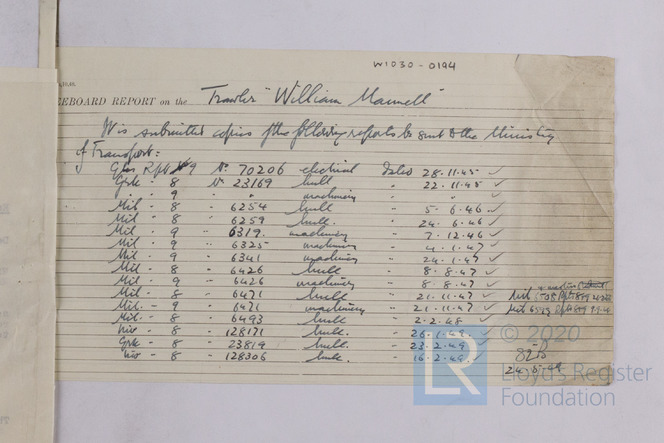 W1030-0194
EEBOARD REPORT on the Trawler "William Mannell"
It is submitted copies of the following reports be sent to the Ministry
of Transport:
Glas Rpt 9 No. 70206 electrical Dated 28.11.45 ✓
Grk - 8 No 23169 hull " 22.11.45 ✓
" - 9 " machinery " " ✓
Mil - 8 - 6254 hull " 5.6.46 ✓
Mil - 8 - 6259 hull. " 24.6.46 ✓
Mil - 9 " 6319. machinery " 7.12.46 ✓
Mil - 9 " 6325 machinery " 4.1.47 ✓
Mil - 9 - 6341 machinery " 24.1.47 ✓
Mil - 8 - 6426 hull " 8.8.47 ✓
Mil - 9 - 6426 machinery " 8.8.47 ✓
Mil - 8 - 6471 hull " 21.11.47 ✓
Mil - 9 - 6471 machinery " 21.11.47 ✓
Mil - 8 - 6493 hull " 2.2.48 ✓
- 8 - 128171 hull. " 26.1.49. ✓
Grk - 8 - 23819 hull - 23.2.49. ✓
- 8 - 128306 hull. " 16.2.49. ✓
24.5.49
© 2020
LR
Lloyd's Register
Foundation